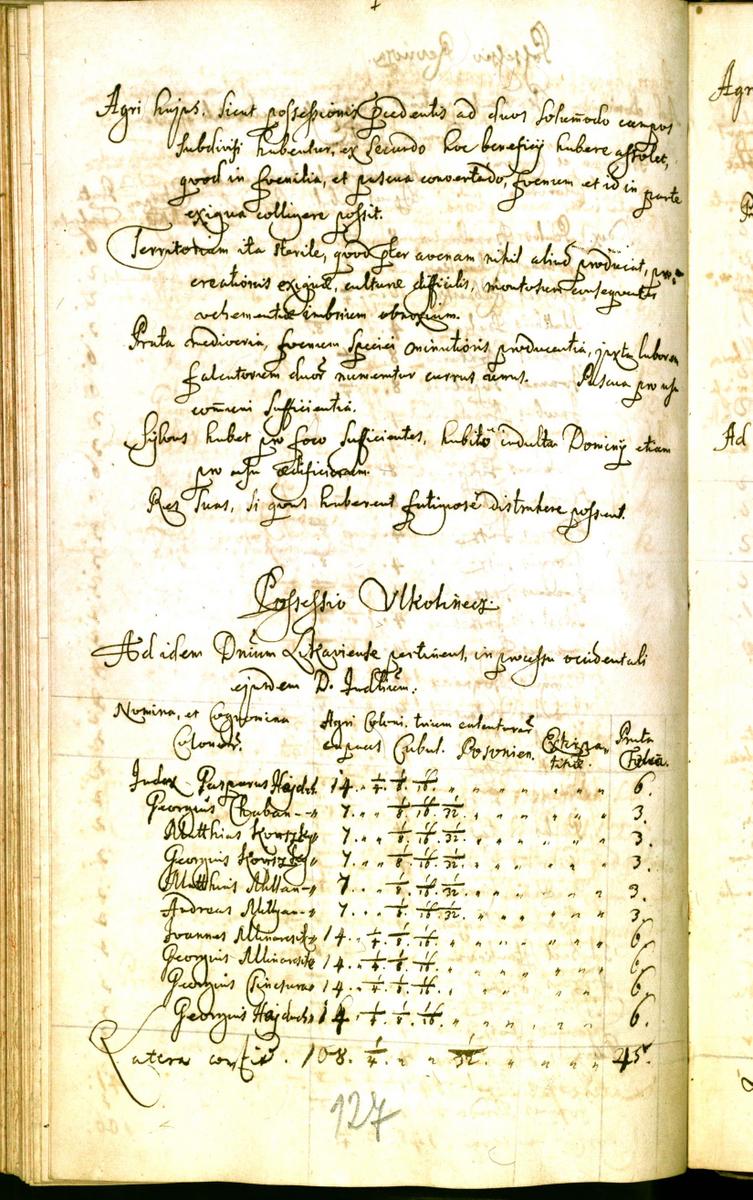 Agri hujus, sicut possessionis pcedentis ad duos solumodo campos
subdivisi habentur, ex secundo hoc beneficij habere assolet,
quod in foenilia, et pascua convertendo, foenum et id in parte
exigua colligere possit.
Territorium ita sterile, quod pter avenam nihil aliud producat, pro-
creationis exiguæ, culturæ difficilis, montosum consequenter
vehementiæ imbrium obnoxium.
Prata mediocria, foenum speciei minutioris producentia, juxta laborem
falcatorum duor numerntur currus unus. Pascua pro usu
comuni sufficientia.
Sylvas habet pro foco sufficientes, habito indultu Dominij etiam
pro usu ædificiorum.
Res suas, si quas haberent distrahere possent.
Possessio Vlkolinecz.
Ad idem Dnium Likaviense pertinent, in processu occidentali
ejusdem D. Judlium.
Nomina, et Cognomina Agri Coloni. trium calcaturar Extirpa- Prata
Colonor. capaces Cubul. Posonien. titiæ. Falca.
Judex Gasparus Hajduch 14. 1/4. 1/8. 1/16. " " " " " " 6.
Georgius Chaban " 7. " " 1/8. 1/16. 1/32. " " " " " 3.
Matthias " 7. " " 1/8. 1/16. 1/32. " " " " " 3.
Georgius " 7. " " 1/8. 1/16. 1/32. " " " " " 3.
Matthias " 7. " " 1/8. 1/16. 1/32. " " " " " 3.
Andreas " 7. " " 1/8. 1/16. 1/32. " " " " " 3.
Joannes 14. 1/4. 1/8. 1/16. " " " " " " 6.
Georgius 14. 1/4. 1/8. 1/16. " " " " " " 6.
Georgius 14. 1/4. 1/8. 1/16. " " " " " " 6.
Georgius Hajduch 14. 1/4. 1/8. 1/16. " " " " " " 6.
Latera 108. 1/4. " " 1/32. " " " " " 45.
127
Agr
Ad